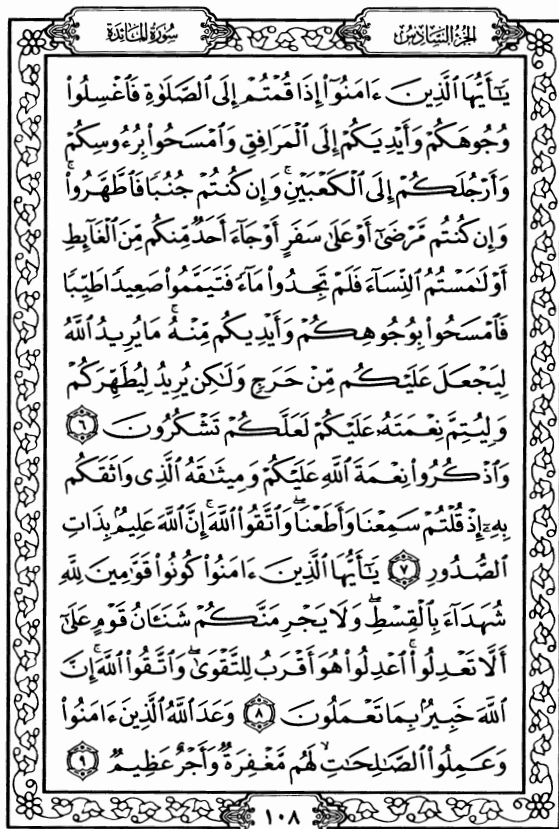 الجزء السادس
سورة المائدة
يَٰٓأَيُّهَا ٱلَّذِينَ ءَامَنُوٓاْ إِذَا قُمۡتُمۡ إِلَى ٱلصَّلَوٰةِ فَٱغۡسِلُواْ
وُجُوهَكُمۡ وَأَيۡدِيَكُمۡ إِلَى ٱلۡمَرَافِقِ وَٱمۡسَحُواْ بِرُءُوسِكُمۡ
وَأَرۡجُلَكُمۡ إِلَى ٱلۡكَعۡبَيۡنِۚ وَإِن كُنتُمۡ جُنُبٗا فَٱطَّهَّرُواْۚ
وَإِن كُنتُم مَّرۡضَىٰٓ أَوۡ عَلَىٰ سَفَرٍ أَوۡ جَآءَ أَحَدٞ مِّنكُم مِّنَ ٱلۡغَآئِطِ
أَوۡ لَٰمَسۡتُمُ ٱلنِّسَآءَ فَلَمۡ تَجِدُواْ مَآءٗ فَتَيَمَّمُواْ صَعِيدٗا طَيِّبٗا
فَٱمۡسَحُواْ بِوُجُوهِكُمۡ وَأَيۡدِيكُم مِّنۡهُۚ مَا يُرِيدُ ٱللَّهُ
لِيَجۡعَلَ عَلَيۡكُم مِّنۡ حَرَجٖ وَلَٰكِن يُرِيدُ لِيُطَهِّرَكُمۡ
وَلِيُتِمَّ نِعۡمَتَهُۥ عَلَيۡكُمۡ لَعَلَّكُمۡ تَشۡكُرُونَ ٦
وَٱذۡكُرُواْ نِعۡمَةَ ٱللَّهِ عَلَيۡكُمۡ وَمِيثَٰقَهُ ٱلَّذِي وَاثَقَكُم
بِهِۦٓ إِذۡ قُلۡتُمۡ سَمِعۡنَا وَأَطَعۡنَاۖ وَٱتَّقُواْ ٱللَّهَۚ إِنَّ ٱللَّهَ عَلِيمُۢ بِذَاتِ
ٱلصُّدُورِ ٧ يَٰٓأَيُّهَا ٱلَّذِينَ ءَامَنُواْ كُونُواْ قَوَّٰمِينَ لِلَّهِ
شُهَدَآءَ بِٱلۡقِسۡطِۖ وَلَا يَجۡرِمَنَّكُمۡ شَنَـَٔانُ قَوۡمٍ عَلَىٰٓ
أَلَّا تَعۡدِلُواْۚ ٱعۡدِلُواْ هُوَ أَقۡرَبُ لِلتَّقۡوَىٰۖ وَٱتَّقُواْ ٱللَّهَۚ إِنَّ
ٱللَّهَ خَبِيرُۢ بِمَا تَعۡمَلُونَ ٨ وَعَدَ ٱللَّهُ ٱلَّذِينَ ءَامَنُواْ
وَعَمِلُواْ ٱلصَّٰلِحَٰتِ لَهُم مَّغۡفِرَةٞ وَأَجۡرٌ عَظِيمٞ ٩
١٠٨